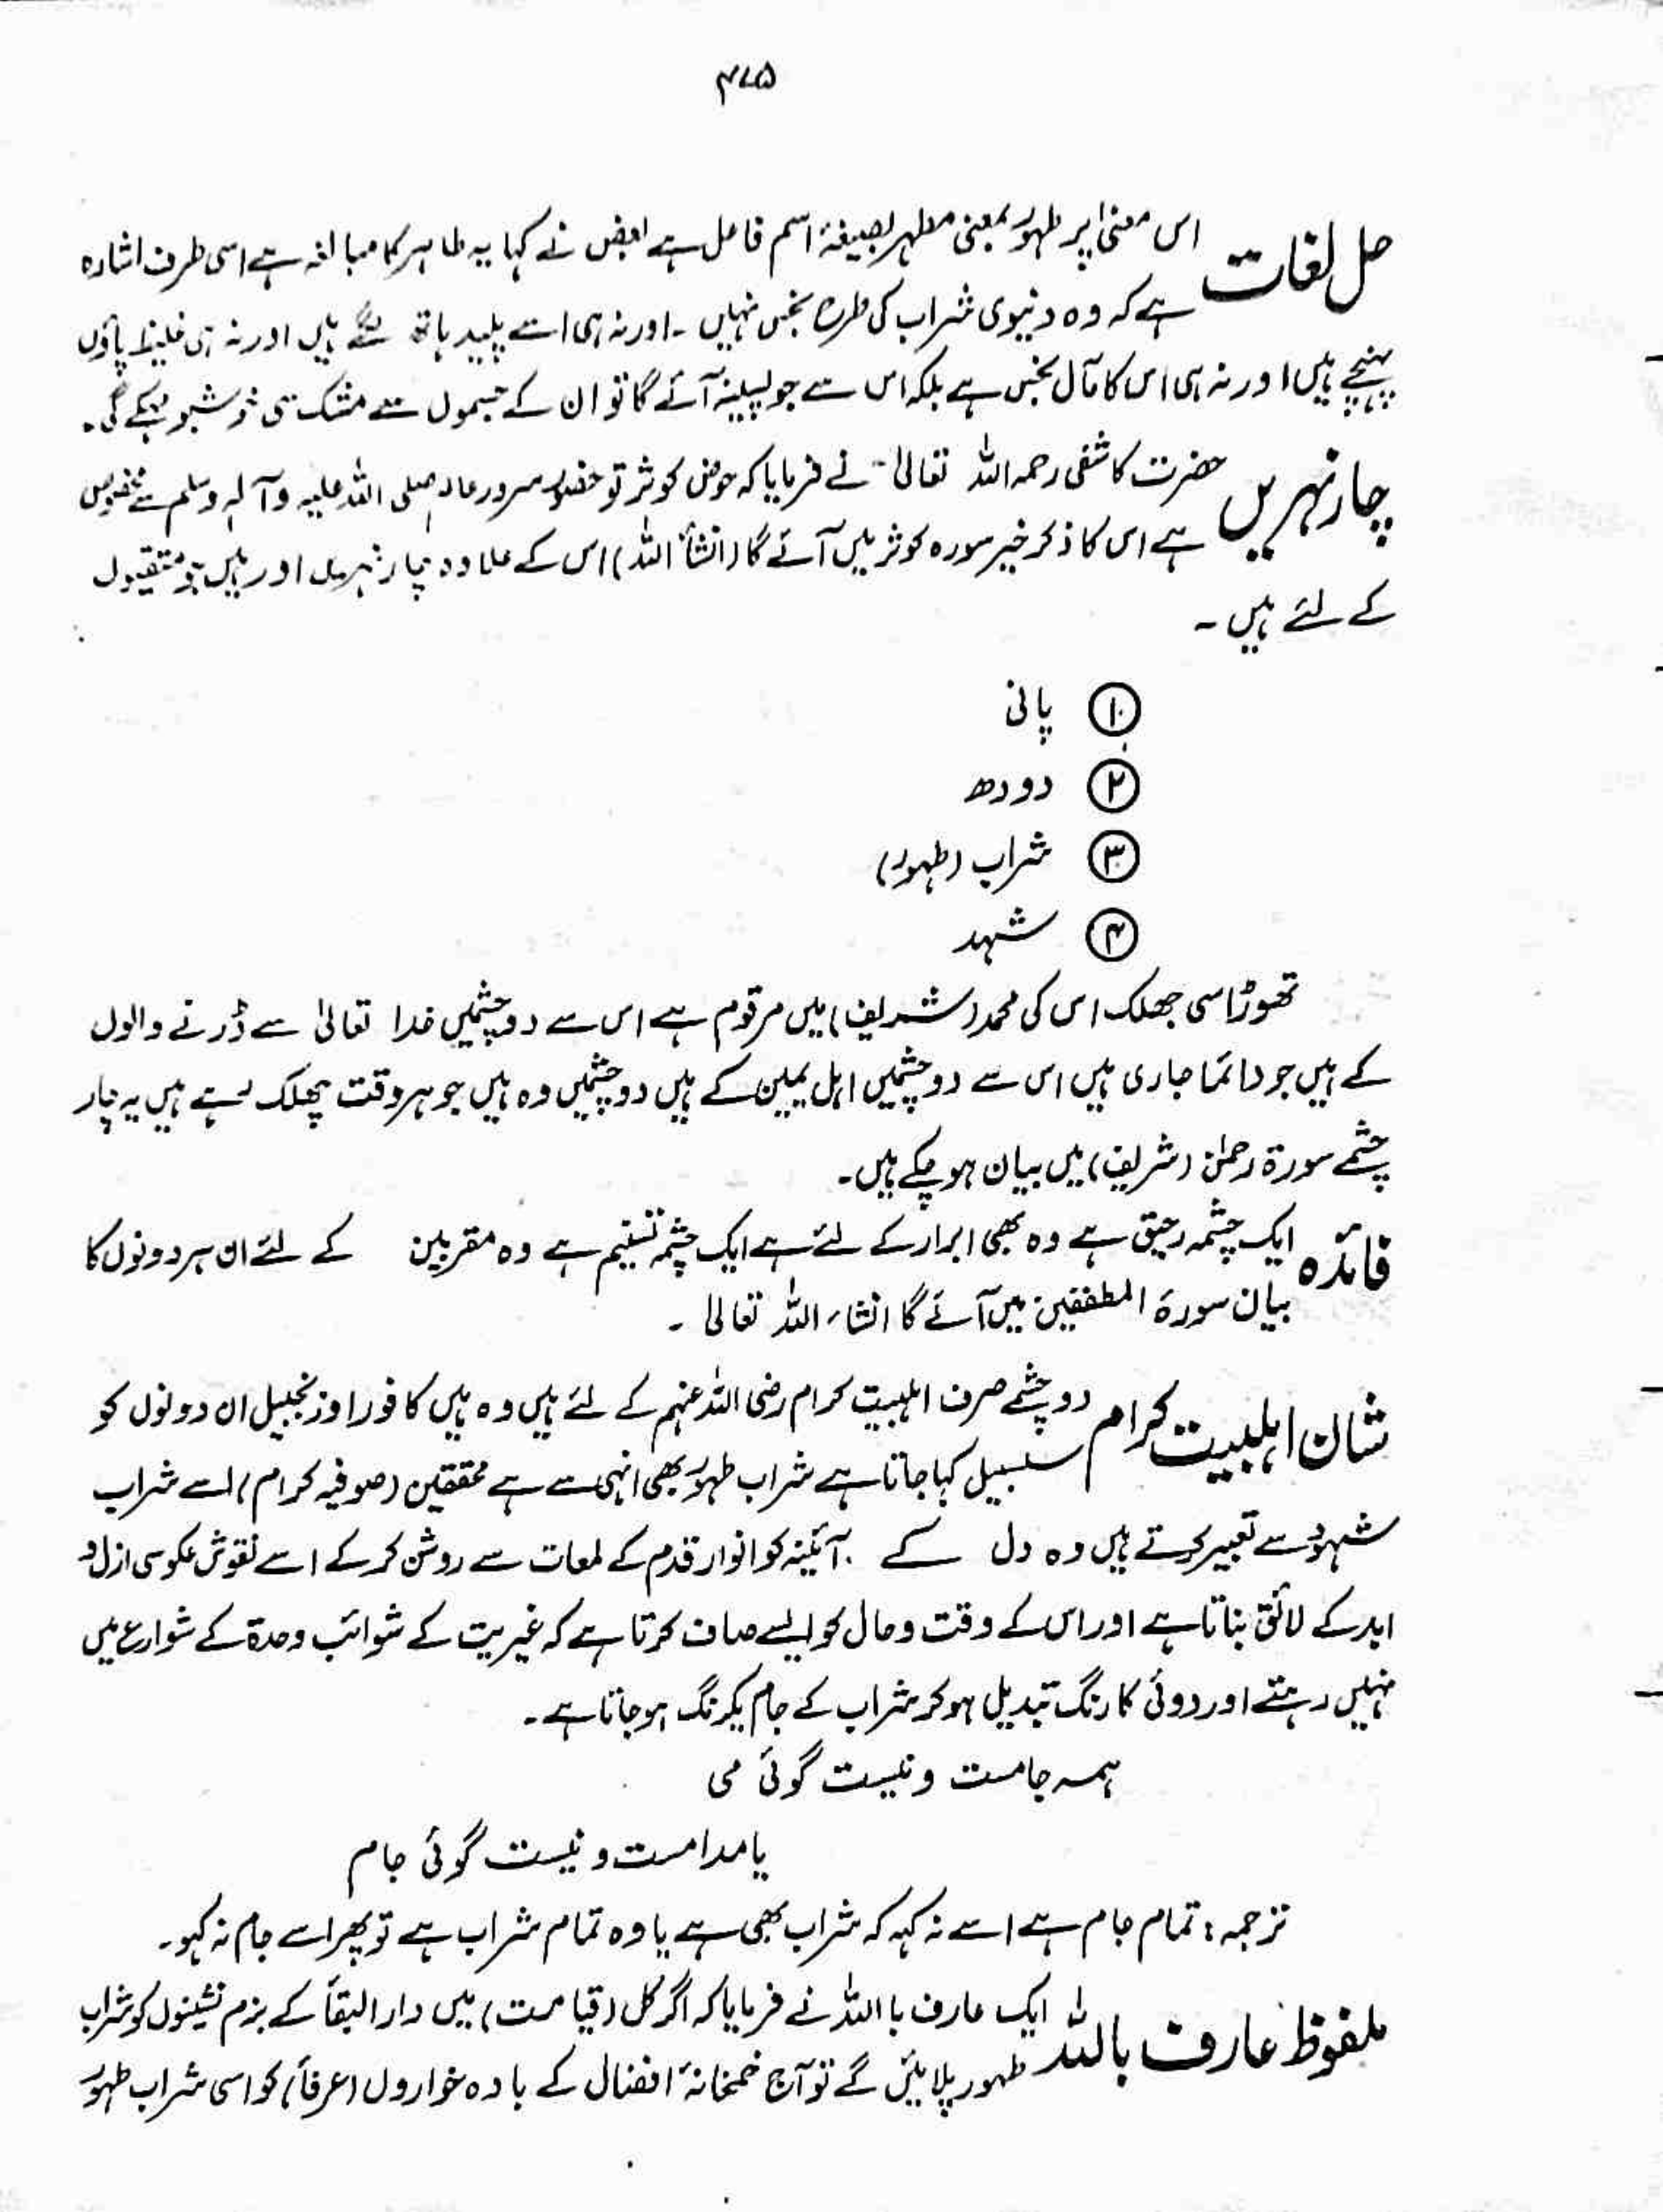 ۴۷۵
حل لغات اس معنیٰ پر طہور بمعنی مطہر بصیغۂ اسم فاعل ہے بعض نے کہا یہ طاہر کا مبالغہ ہے اسی طرف اشارہ
ہے کہ وہ دنیوی شراب کی طرح نجس نہیں ۔ اور نہ ہی اسے پلید ہاتھ لگے ہیں اور نہ ہی غلیظ پاؤں
پہنچے ہیں اور نہ ہی اس کا مآل نجس ہے بلکہ اس سے جو پسینہ آئے گا تو ان کے جسموں سے مشک سی خوشبو مہکے گی۔
چار نہریں حضرت کاشفی رحمہ اللہ تعالیٰ نے فرمایا کہ حوض کوثر تو حضور سرور عالم صلی اللہ علیہ وآلہٖ وسلم سے مخصوص
ہے اس کا ذکر خیر سورہ کوثر میں آئے گا (انشأ اللہ) اس کے علاوہ چار نہریں اور ہیں جو متقیوں
کے لئے ہیں ۔
① پانی
② دودھ
③ شراب (طہور)
④ شہد
تھوڑا سی جھلک اس کی محمد (شریف) میں مرقوم ہے اس سے دو چشمیں خدا تعالیٰ سے ڈرنے والوں
کے ہیں جو دائما جاری ہیں اس سے دو چشمیں اہل یمین کے ہیں دو چشمیں وہ ہیں جو ہر وقت چھلک رہے ہیں یہ چار
چشمے سورۃ رحمٰن (شریف) میں بیان ہو چکے ہیں۔
فائدہ ایک چشمہ رحیق ہے وہ بھی ابرار کے لئے ہے ایک چشمہ تسنیم ہے وہ مقربین کے لئے ان ہر دونوں کا
بیان سورۃ المطففین میں آئے گا انشاء اللہ تعالیٰ ۔
شان اہلبیت کرام دو چشمے صرف اہلبیت کرام رضی اللہ عنہم کے لئے ہیں وہ ہیں کافور اور زنجبیل ان دونوں کو
سلسبیل کہا جاتا ہے شراب طہور بھی انہی سے ہے محققین (صوفیہ کرام) اسے شراب
شہود سے تعبیر کرتے ہیں وہ دل کے آئینہ کو انوار قدم کے لمعات سے روشن کر کے اسے نقوش عکوسی ازل و
ابد کے لائق بناتا ہے اور اس کے وقت و حال کو ایسے صاف کرتا ہے کہ غیریت کے شوائب وحدۃ کے شوارع میں
نہیں رہتے اور دوئی کا رنگ تبدیل ہو کر شراب کے جام یکرنگ ہو جاتا ہے۔
ہمہ جامست و نیست گوئی می
یا مدامست و نیست گوئی جام
ترجمہ : تمام جام ہے اسے نہ کہہ کہ شراب بھی ہے یا وہ تمام شراب ہے تو پھر اسے جام نہ کہو۔
ملفوظ عارف باللہ ایک عارف با اللہ نے فرمایا کہ اگر کل (قیامت) میں دار البقأ کے بزم نشینوں کو شراب
طہور پلائیں گے تو آج خمخانۂ افضال کے بادہ خواروں (عرفأ) کو اسی شراب طہور